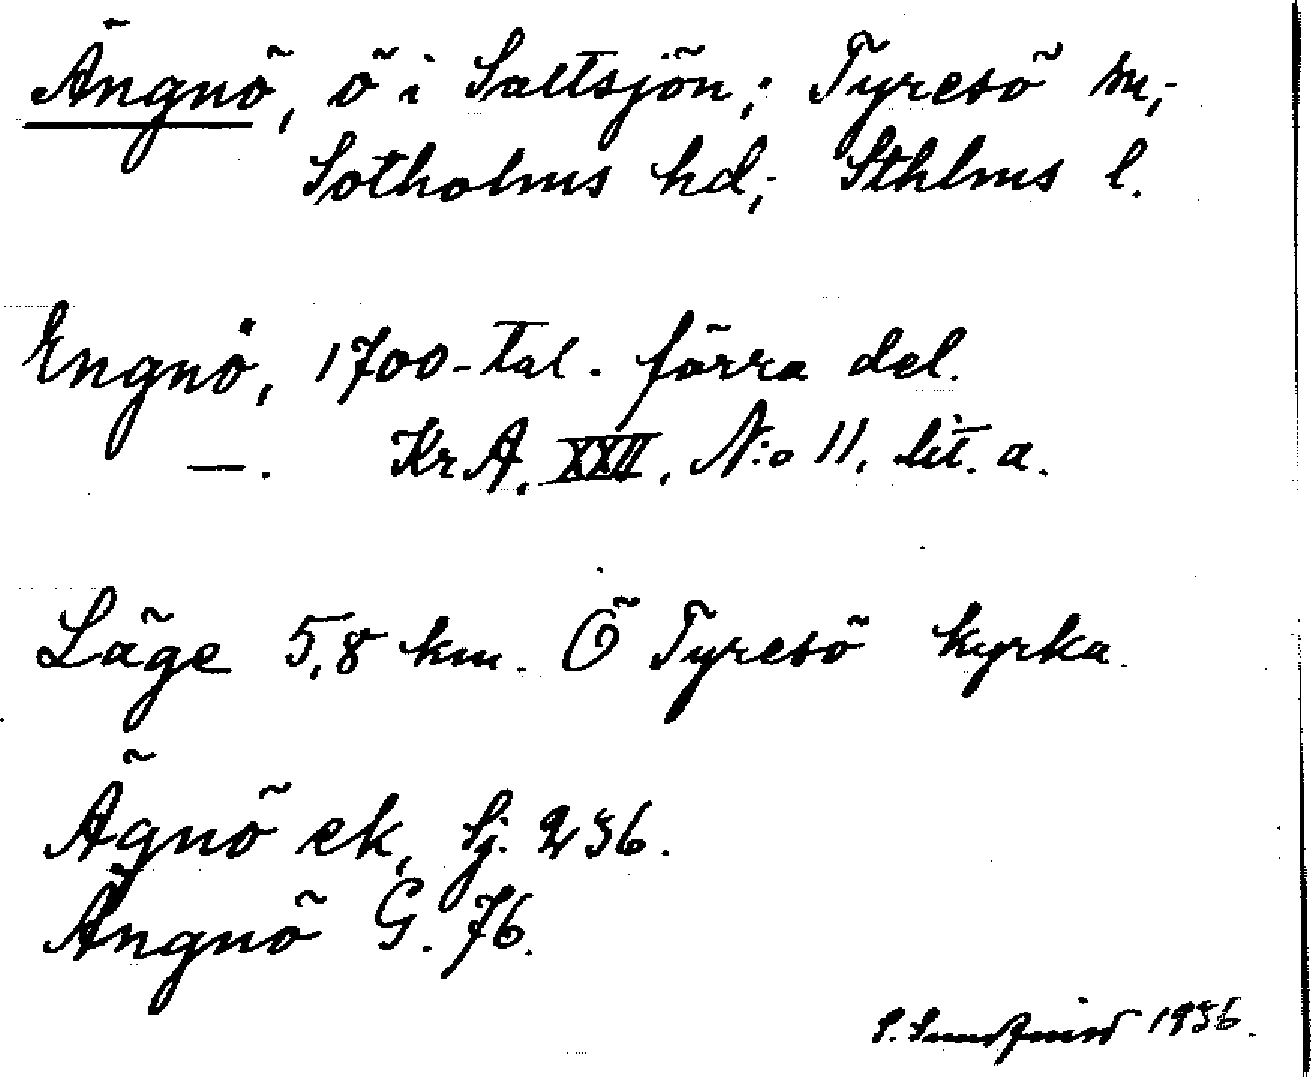 Ängnö, ö i Saltsjön; Tyresö sn;
Sotholms hd; Sthlms l.
Engnö, 1700-tal. förra del.
—. KrA. XXII. N:o 11. lit. a.
Läge 5,8 km. Ö Tyresö kyrka.
Ägnö ek, Sj. 236.
Ängnö G. 76.
S. Sundqvist 1936.